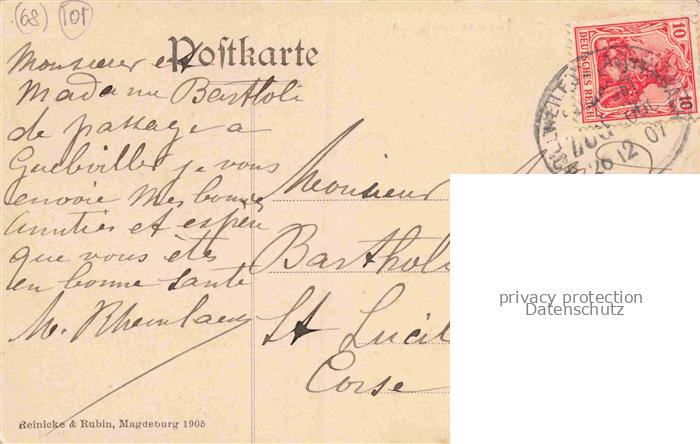 (68) (101)
Postkarte
Monsieur et
Madame Bartholi
de passage a
Guebviller je vous
envoie mes bonnes
amities et espère
que vous êtes
en bonne santé
M.
Monsieur
Barthol
St Lucil
Corse
Reinicke & Rubin, Magdeburg 1905
DEUTSCHES REICH
10
10
ZUG
26 12 07
privacy protection
Datenschutz